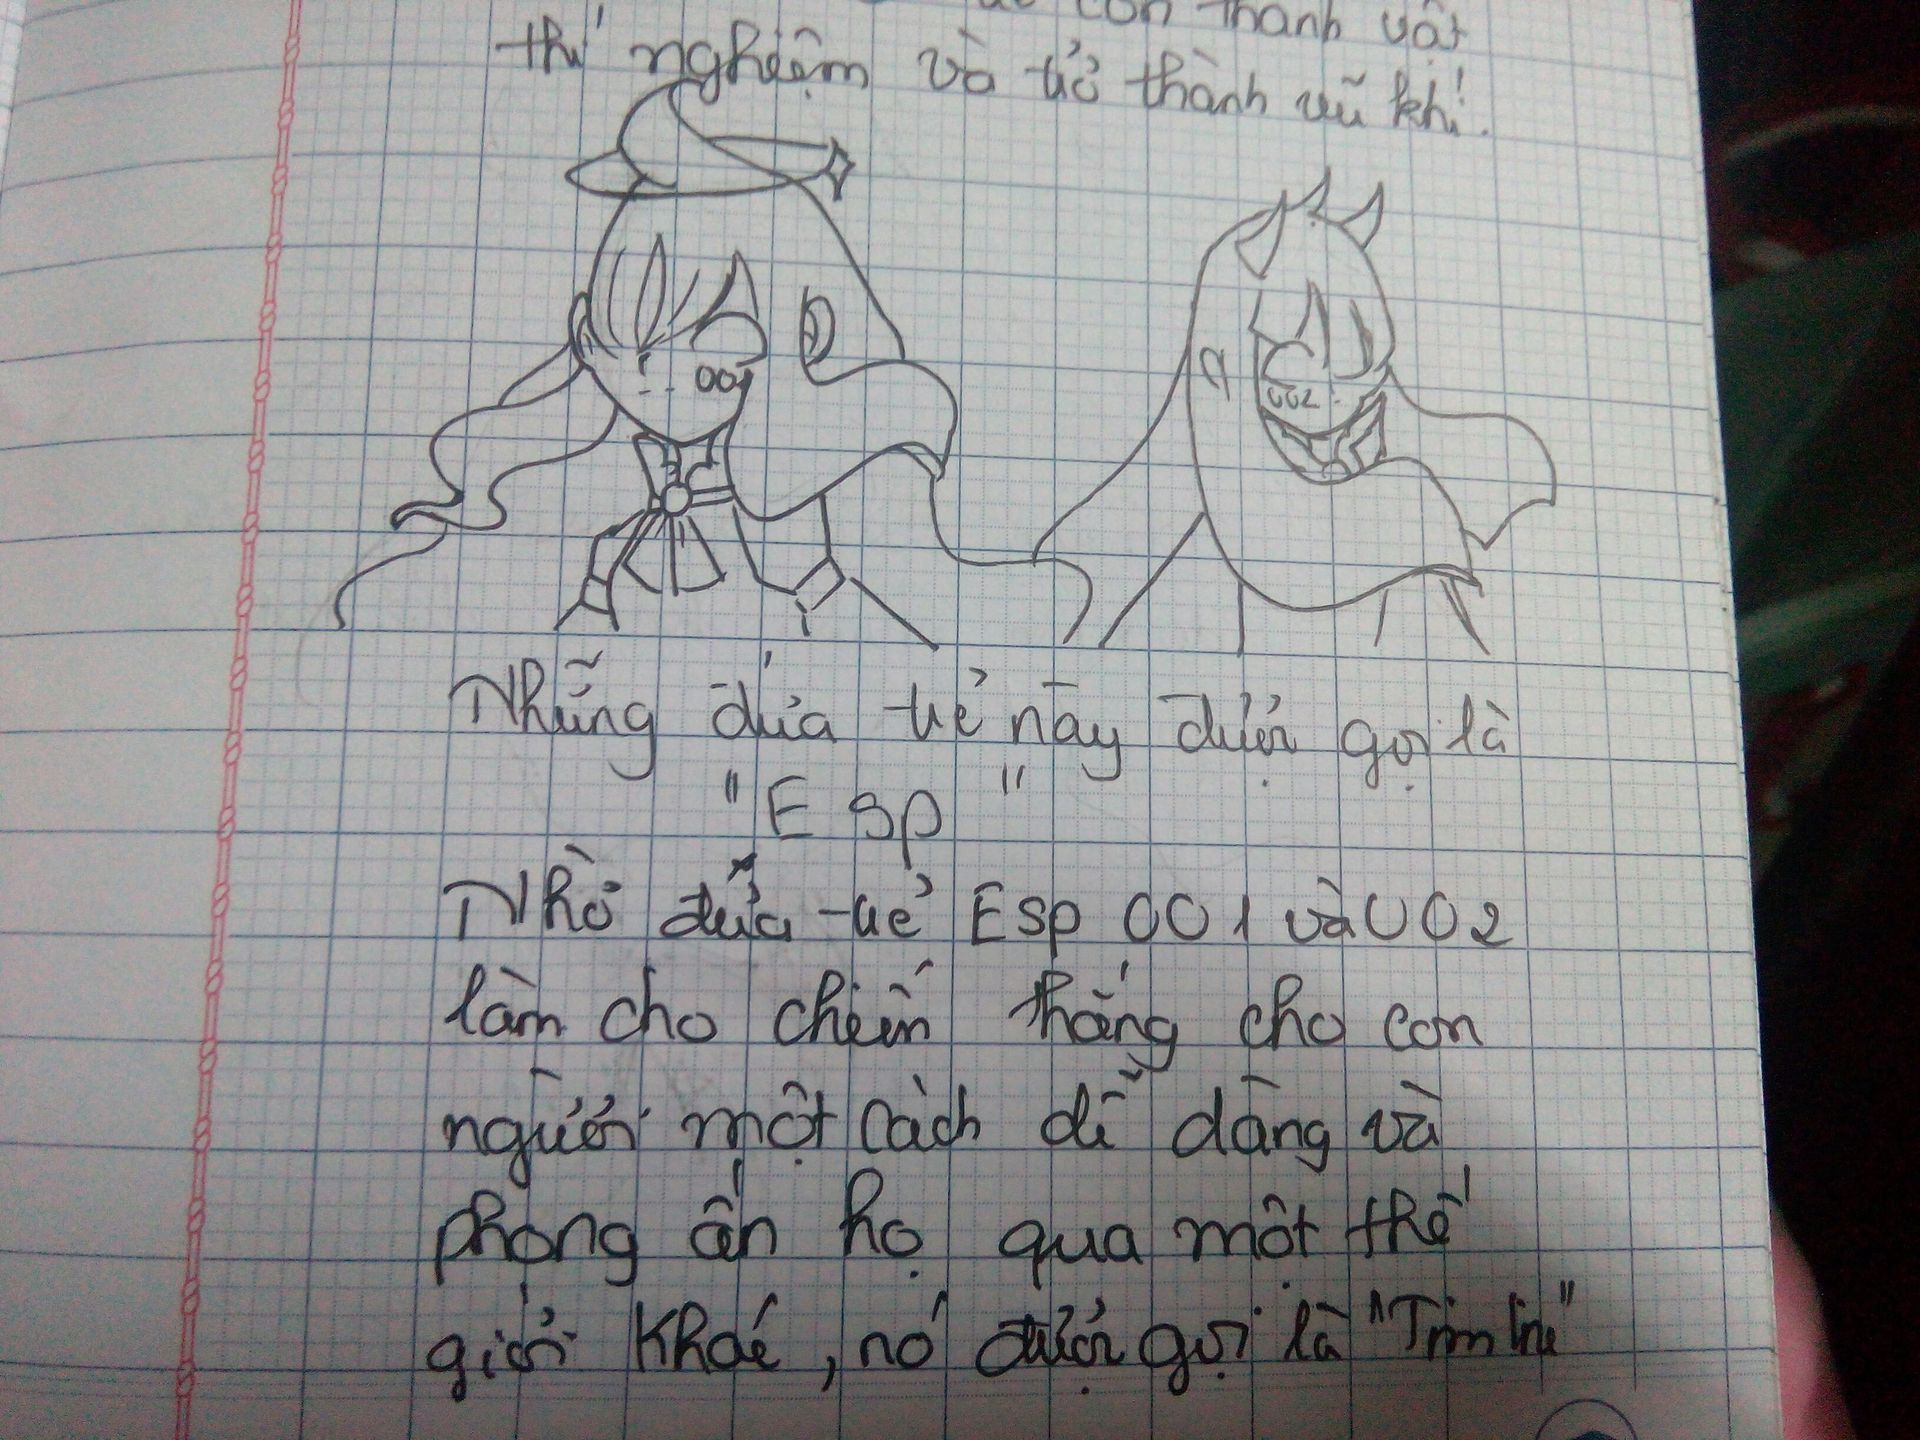 con thành vật
thí nghiệm và trở thành vũ khí.
001
002
Những đứa trẻ này được gọi là
"Esp"
Nhờ đứa trẻ Esp 001 và 002
làm cho chiến thắng cho con
người một cách dễ dàng và
phong ấn họ qua một thế
giới khác, nó được gọi là "Timline"